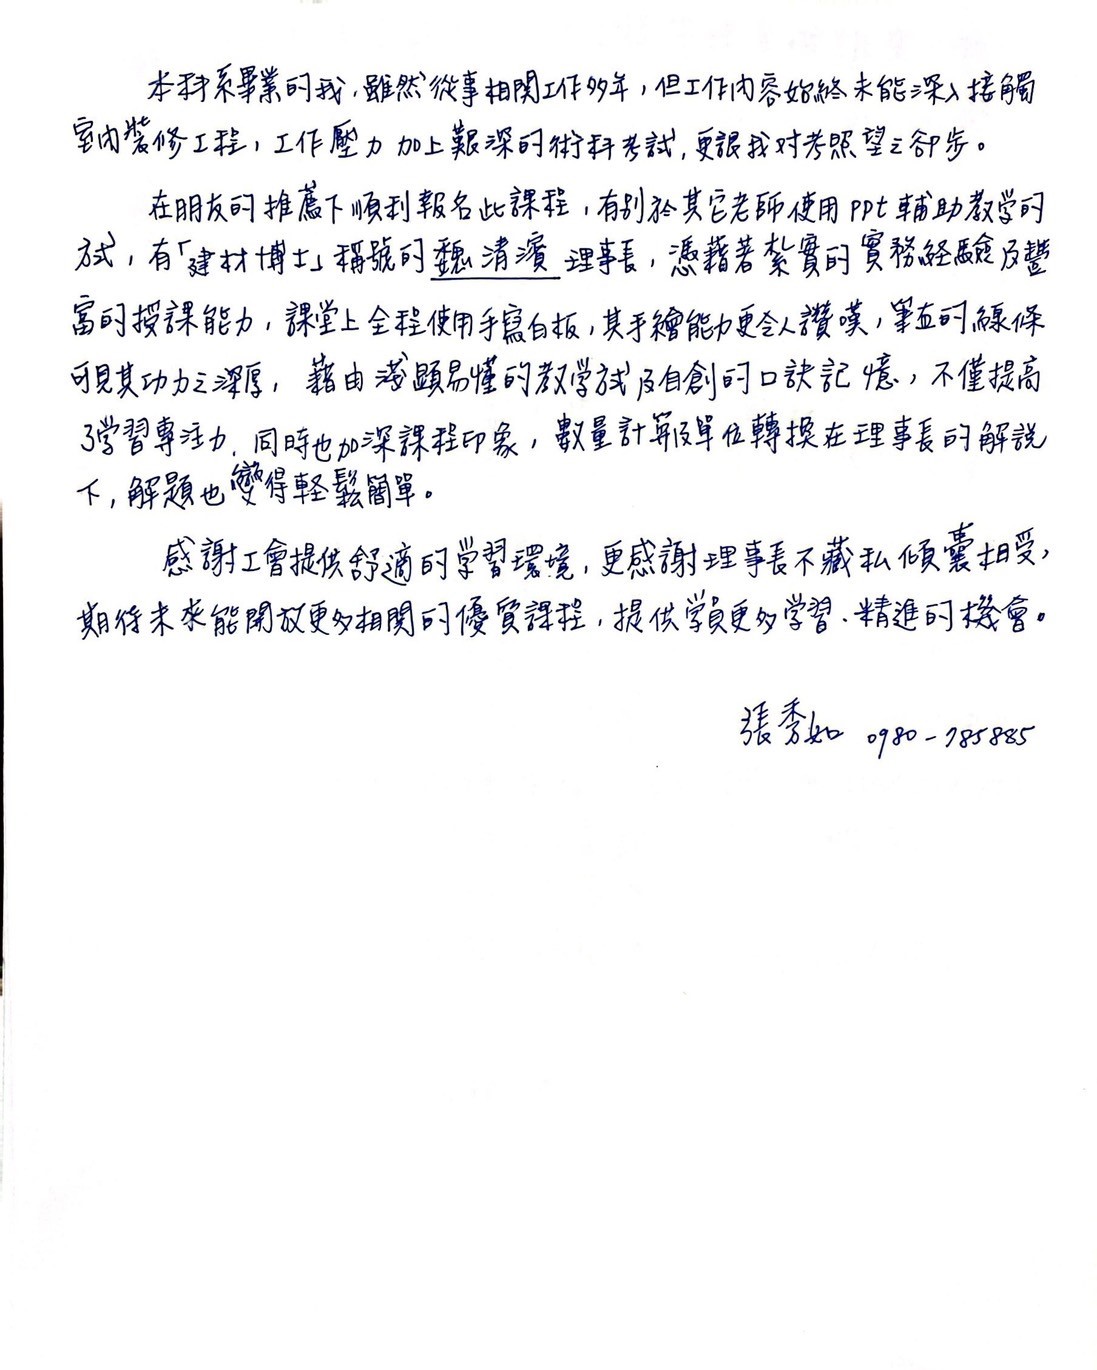 本科系畢業的我，雖然從事相関工作多年，但工作內容始終未能深入接觸
室內裝修工程，工作壓力加上艱深的術科考試，更讓我对考照望之卻步。
在朋友的推薦下順利報名此課程，有別於其它老師使用ppt輔助教学的
方式，有「建材博士」稱號的 清濱 理事長，憑藉著紮實的實務経驗及豐
富的授課能力，課堂上全程使用手寫白板，其手繪能力更令人讚嘆，筆直的線條
可見其功力之深厚，藉由淺顯易懂的教学方式及自創的口訣記憶，不僅提高
了学習專注力，同時也加深課程印象，數量計算及單位轉換在理事長的解説
下，解題也變得輕鬆簡單。
感謝工會提供舒適的学習環境，更感謝理事長不藏私傾囊相受，
期待未來能開放更多相関的優質課程，提供學員更多学習、精進的機會。
張秀如 0980-785885